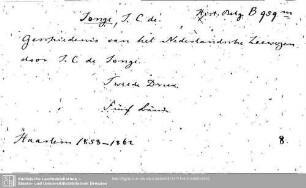 Jonge, J. C. de. Hist. Belg. B 959 m
Geschiedenis van het Nederlandsche Zeewezen
door J. C. de Jonge.
Tweede Druk.
Fünf Bände
Haarlem 1858-1862 8.
Sächsische Landesbibliothek -
Staats- und Universitätsbibliothek Dresden